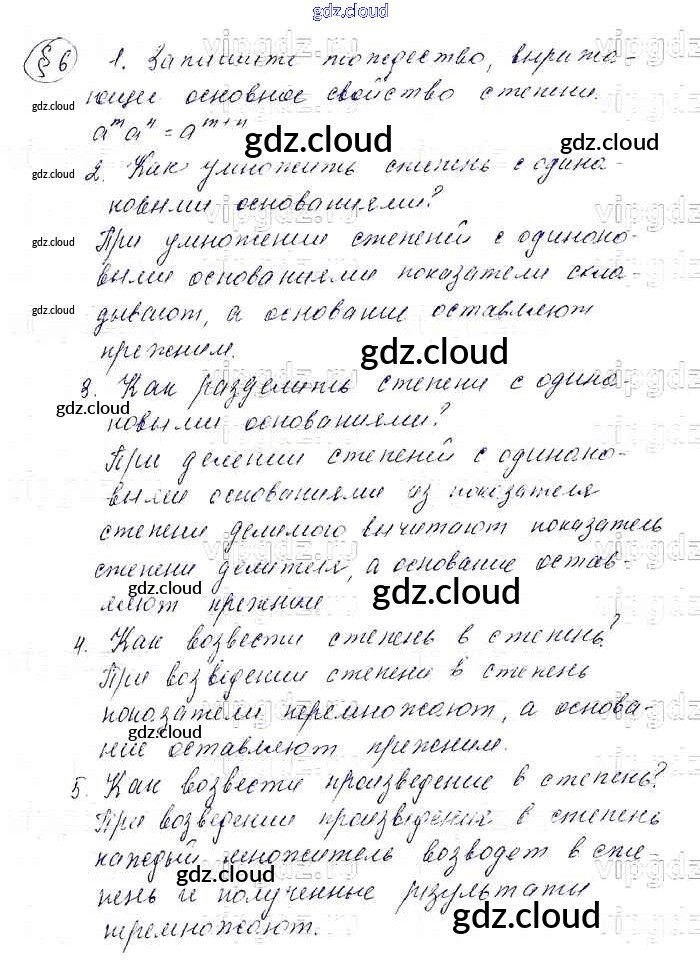 gdz.cloud
§ 6 1. Запишите тождество, выража-
ющее основное свойство степени.
aᵐaⁿ = aᵐ⁺ⁿ
2. Как умножить степень с одина-
ковыми основаниями?
При умножении степеней с одинако-
выми основаниями показатели скла-
дывают, а основание оставляют
прежним.
3. Как разделить степени с одина-
ковыми основаниями?
При делении степеней с одинако-
выми основаниями из показателя
степени делимого вычитают показатель
степени делителя, а основание остав-
ляют прежние
4. Как возвести степень в степень?
При возведении степени в степень
показатели перемножают, а основа-
ние оставляют прежним.
5. Как возвести произведение в степень?
При возведении произведения в степень
каждый множитель возводят в сте-
пень и полученные результаты
перемножают.